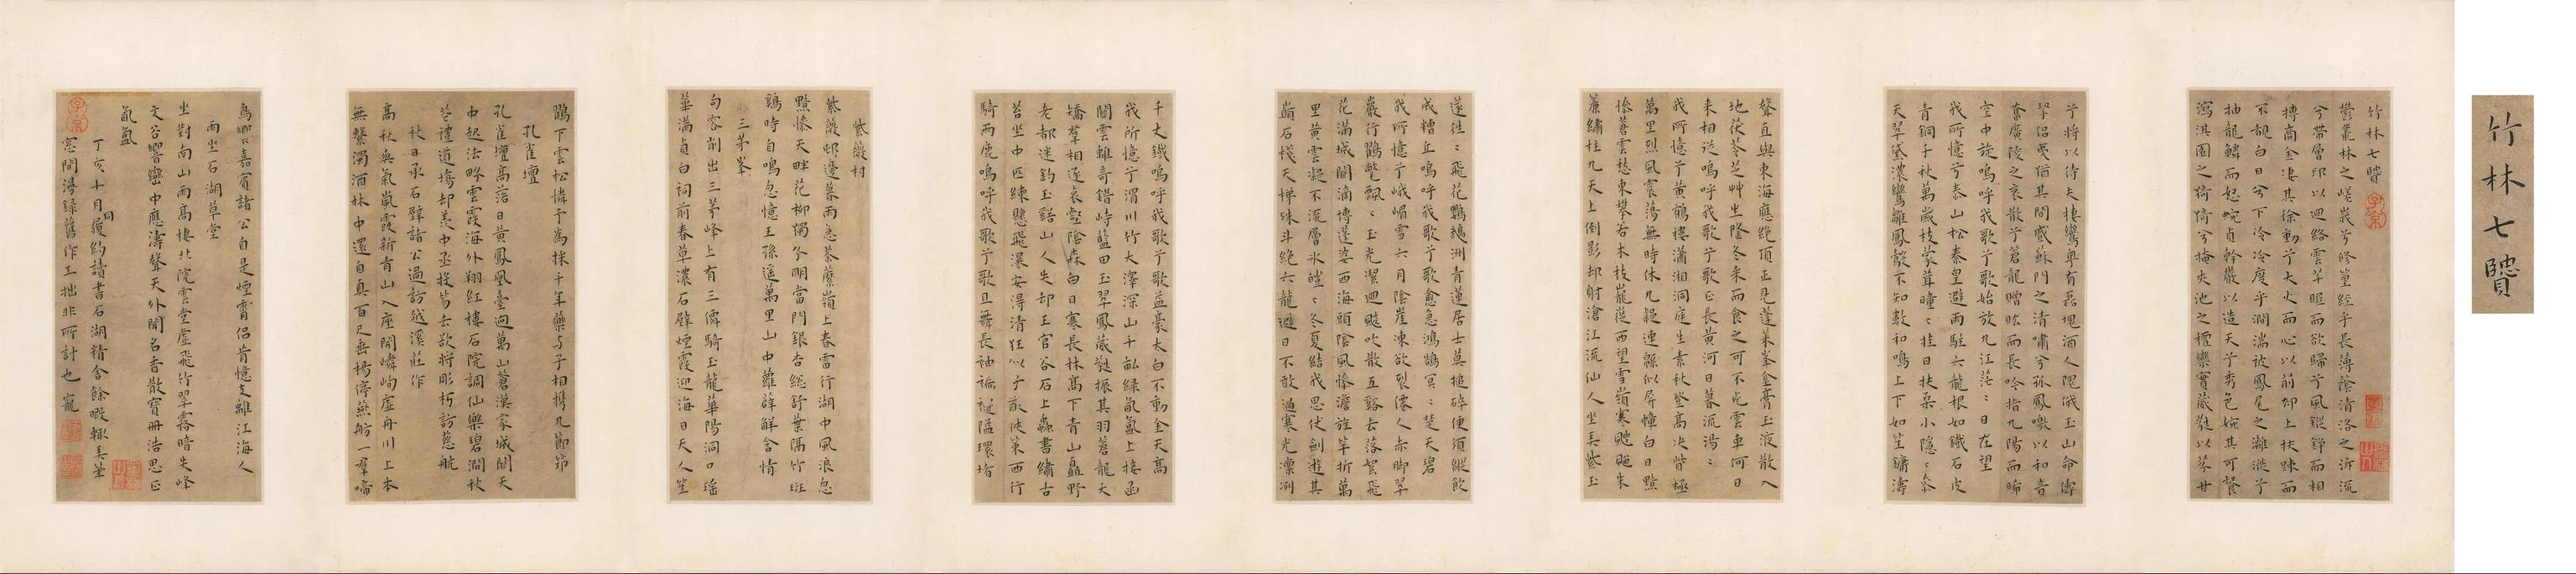 竹林七贒
竹林七贒
鬱叢林之嵯峩兮修篁經乎長薄蔭清洛之沂流
兮帶層邱以迴絡雲芊眠而欲歸兮風鏦錚而相
搏高金凄其徐動兮大火而心以前却上扶疎而
不覩白日兮下泠泠度乎澗湍被鳳尾之灕漇兮
抽龍鱗而怒蜿貞幹嚴以造天兮秀色婉其可餐
瀉淇園之猗猗兮掩夾池之檀欒實葳蕤以苾甘
兮將以待夫棲鸞卑有磊塊酒人隗俄玉山命儔
孥侶曵猶其間感蘇門之清嘯兮孤鳳噭以和音
奮廣陵之哀散兮蒼龍瞪眩而長吟指九陽而晞
空中旋嗚呼我歌兮歌始放九江茫茫日在望
我所憶兮泰山松秦皇避雨駐六龍根如鐵石皮
青銅千秋萬歲枝蒙茸曈曈挂日扶桑小隱隱參
天翠黛濃鸞雛鳳鷇不知數和鳴上下如笙鏞濤
聲直與東海應絶頂正見蓬萊峯金膏玉液散入
地茯苓芝艸生隆冬來而食之可不死雲車何日
來相送嗚呼我歌兮歌正長黃河日暮流湯湯
我所憶兮黃鶴樓瀟湘洞庭生素秋登高决眥極
萬里烈風震蕩無時休九疑連緜似屏幛白日黯
慘蒼雲愁東攀若木枝巃嵷西望雪嶺寒飀飀朱
簾繡柱九天上倒影却射滄江流仙人坐弄紫玉
邃往往飛花鸚鵡洲青蓮居士莫搥碎便須縱飲
成糟丘嗚呼我歌兮歌愈急鴻鵠冥冥楚天碧
我所憶兮峨嵋雪六月陰崖凍欲裂僊人赤脚翠
嚴行鸛氅飄飄玉光潔迴飇吹散五谿去落絮飛
花滿城闕滴博蓬婆西海頭陰風慘澹旌竿折萬
里黃雲凝不流層氷皚皚冬夏結我思仗劍遊其
巔石棧天梯殊斗絶六龍避日不敢過寒光凓冽
千丈鐵嗚呼我歌兮歌益豪太白不動金天高
我所憶兮渭川竹大澤深山千畝緑氤氳上接函
關雲離奇錯峙藍田玉翠鳳葳蕤振其羽蒼龍夭
矯羣相逐哀壑陰森白日寒長林髙下青山矗野
老都迷釣玉谿山人失却王官谷石上蟲書繡古
苔坐中匹練懸飛瀑安得清狂似子猷徙策西行
騎兩鹿嗚呼我歌兮歌且舞長袖褊褼隘環堵
紫薇村
紫薇邨邊暮雨急荼蘼嶺上春雷行湖中風浪忽
黯慘天畔花柳獨分明當門銀杏總舒葉隔竹斑
鶏時自鳴忽憶王孫遥萬里山中蘿薜解含情
三茅峯
句容削出三茅峰上有三僊騎玉龍華陽洞口瑶
華滿貞白祠前春草濃石壁煙霞迎海日天人笙
鶴下雲松憐予為採千年藥与子相携九節笻
孔雀壇
孔雀壇高落日黃鳳凰臺迥萬山蒼漢家城闕天
中起法畔雲霞海外翔紅樓石院調仙樂碧澗秋
苍禮道塲却羨中丞投笏去欲將彫朽訪慈航
秋日承石壁諸公過訪越溪莊作
髙秋奥氣嵐霞新青山入座開嶙峋虚舟川上本
無繫濁酒林中還自真百尺垂楊停燕舫一羣啼
鳥卿卿嘉賓諸公自是煙霄侣肯憶支離江海人
雨坐石湖草堂
坐對南山雨髙樓北院雲堂虚飛竹翠霧暗失峰
文谷響巒中應濤聲天外聞名香散寶冊浩思正
氤氳
丁亥十月履約同讀書石湖精舍餘暇輒弄筆
窓間漫録舊作工拙非所計也寵